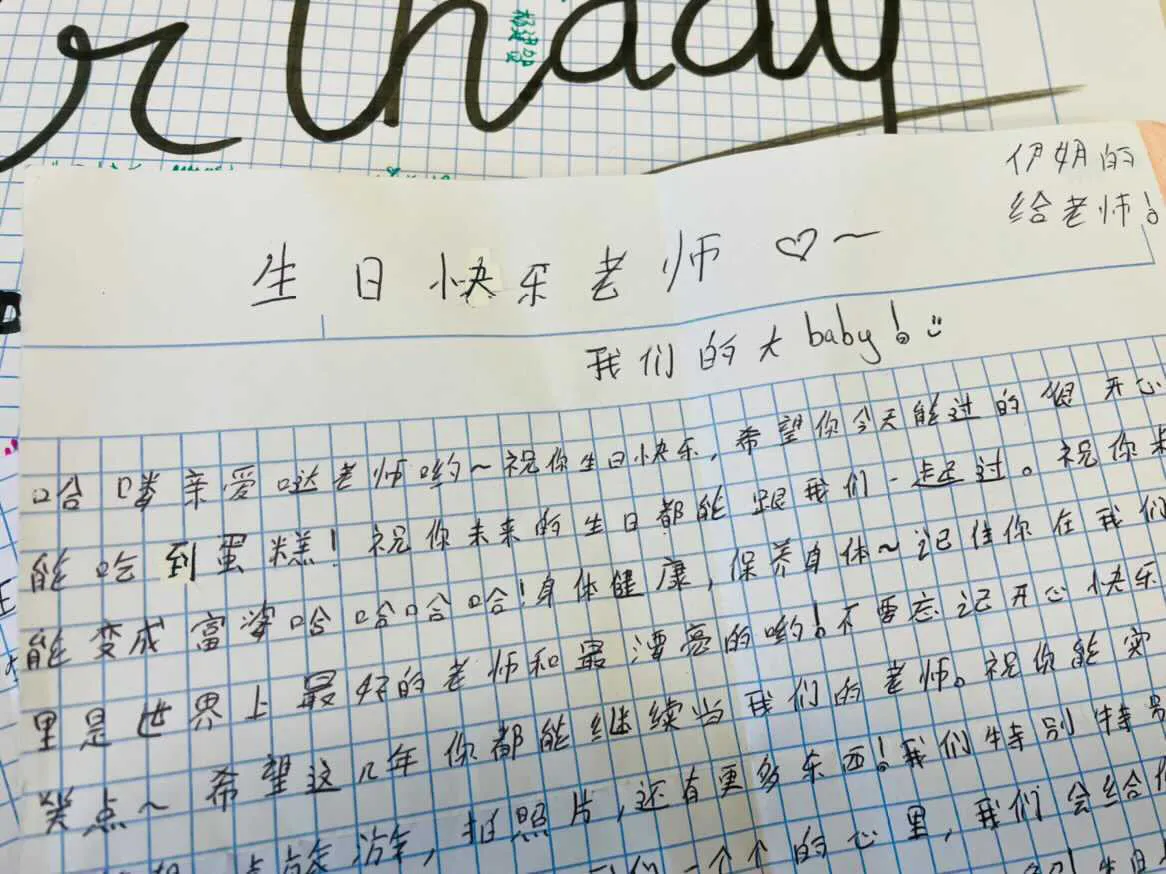 rthday
伊妍的
给老师!
生日快乐老师♡~
我们的大baby!
哈喽亲爱哒老师哟~祝你生日快乐,希望你今天能过的很开心
能吃到蛋糕!祝你未来的生日都能跟我们一起过。祝你未
能变成富婆哈哈哈哈!身体健康,保养身体~记住你在我们
里是世界上最好的老师和最漂亮的哟!不要忘记开心快乐
笑点~希望这几年你都能继续当我们的老师。祝你能实
旅游,拍照片,还有更多东西!我们特别特别
们一个个的心里,我们会给你
生日